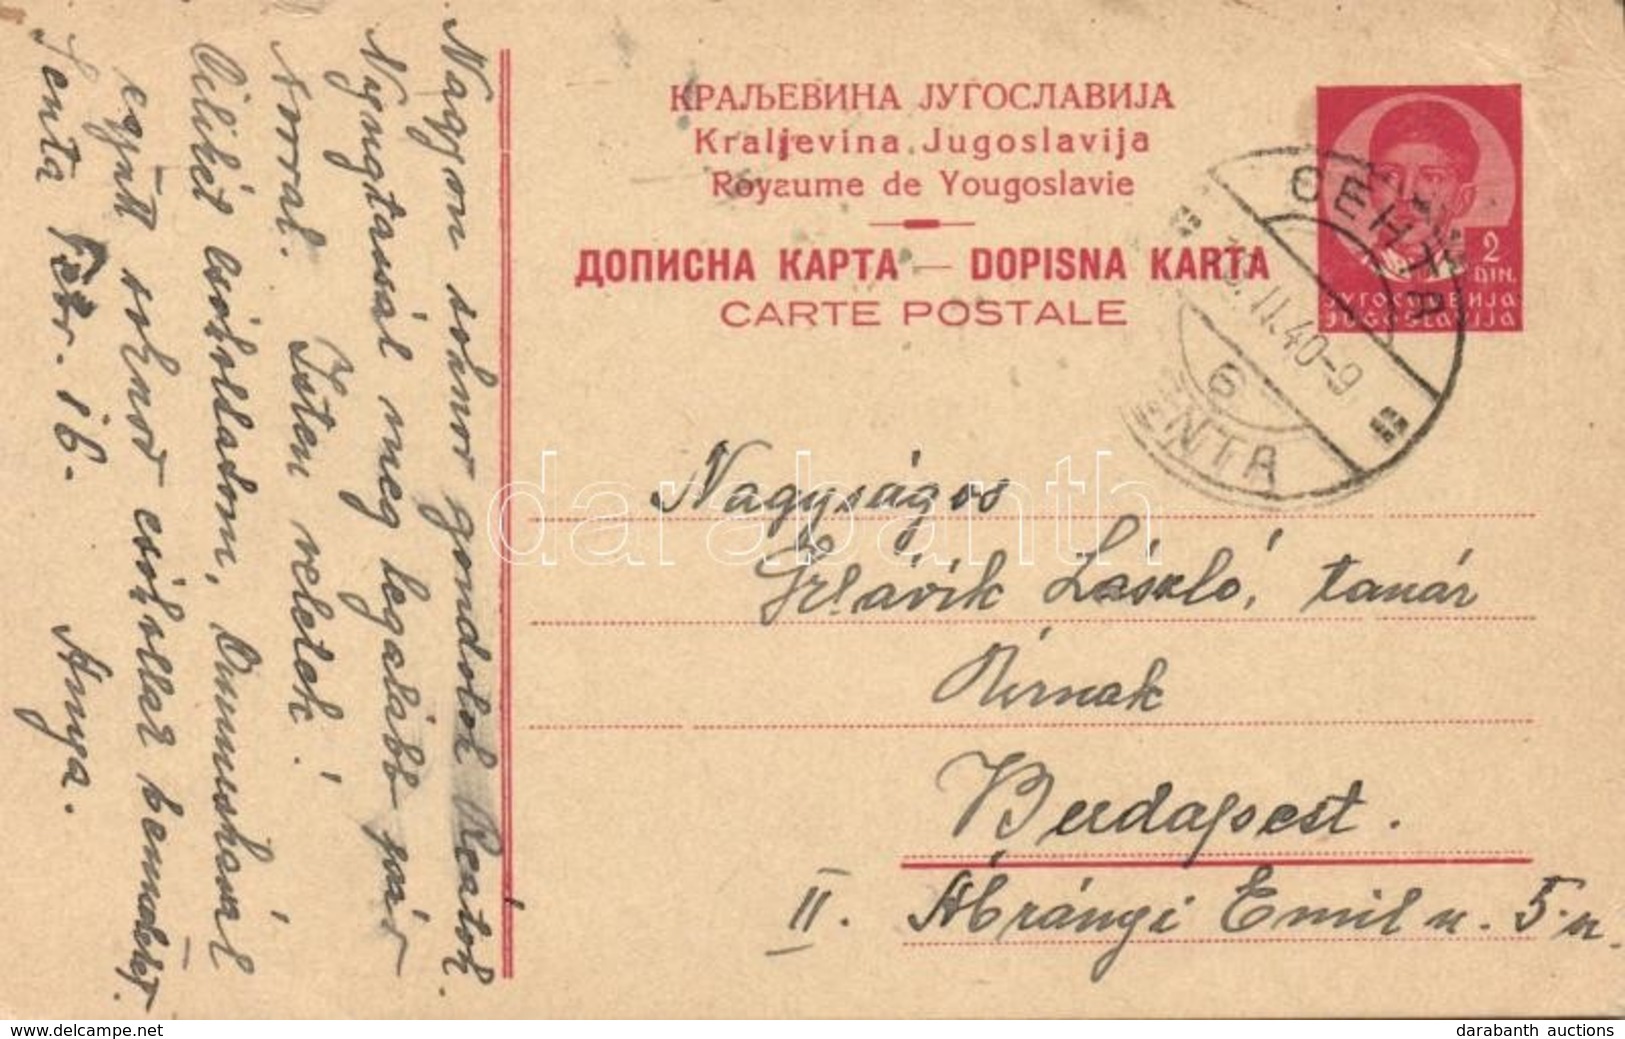 Nagyon sokszor gondolok Reátok.
Nyugtassál meg legalább pár
sorral. Isten veletek!
Cilikét csókolladom, Önnuskával
együtt sokszor csókollak benneteket.
Senta Febr. 16. Anyja.
КРАЉЕВИНА ЈУГОСЛАВИЈА
Kraljevina Jugoslavija
Royaume de Yougoslavie
ДОПИСНА КАРТА — DOPISNA KARTA
CARTE POSTALE
2
DIN.
ЈУГОСЛАВИЈА
JUGOSLAVIJA
СЕНТА
II.40-9
6
SENTA
Nagyságos
Hlávik László, tanár
Úrnak
Budapest.
II. Ábrányi Emil u. 5. u.
darabanth
delcampe.net
darabanth auctions